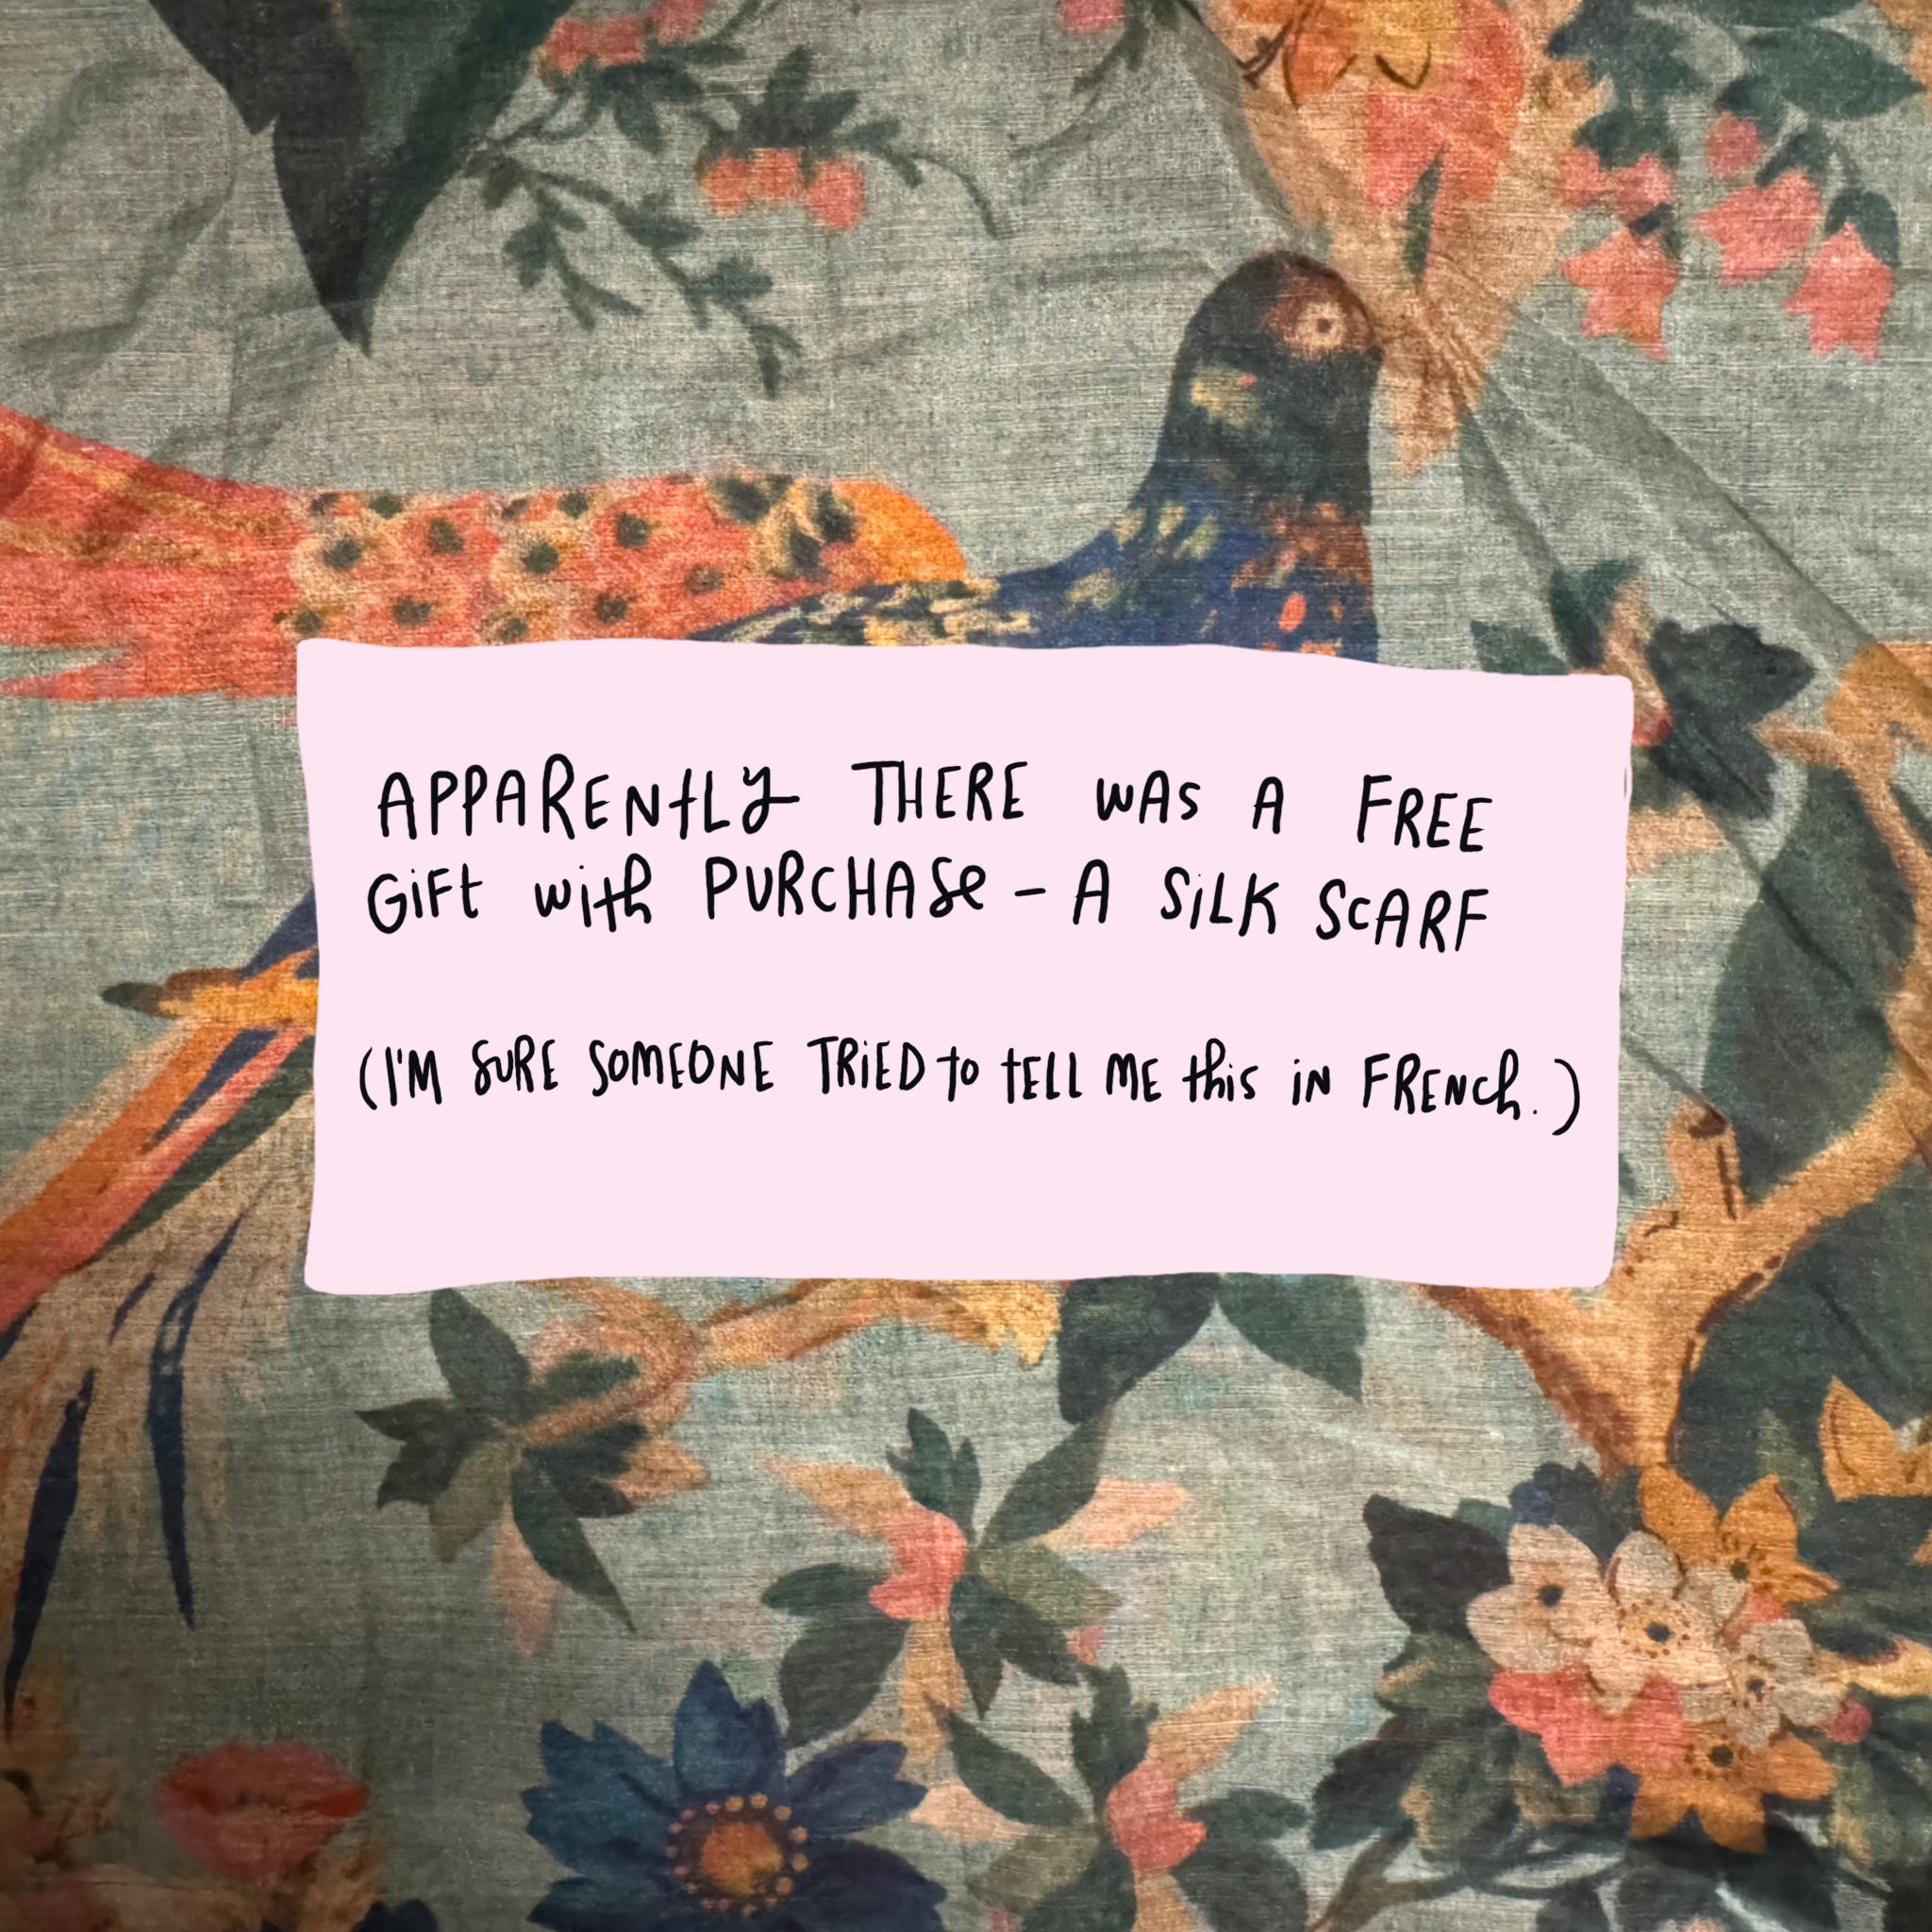 APPARENTLY THERE WAS A FREE
GIFT WITH PURCHASE - A SILK SCARF
(I'M SURE SOMEONE TRIED TO TELL ME THIS IN FRENCH.)